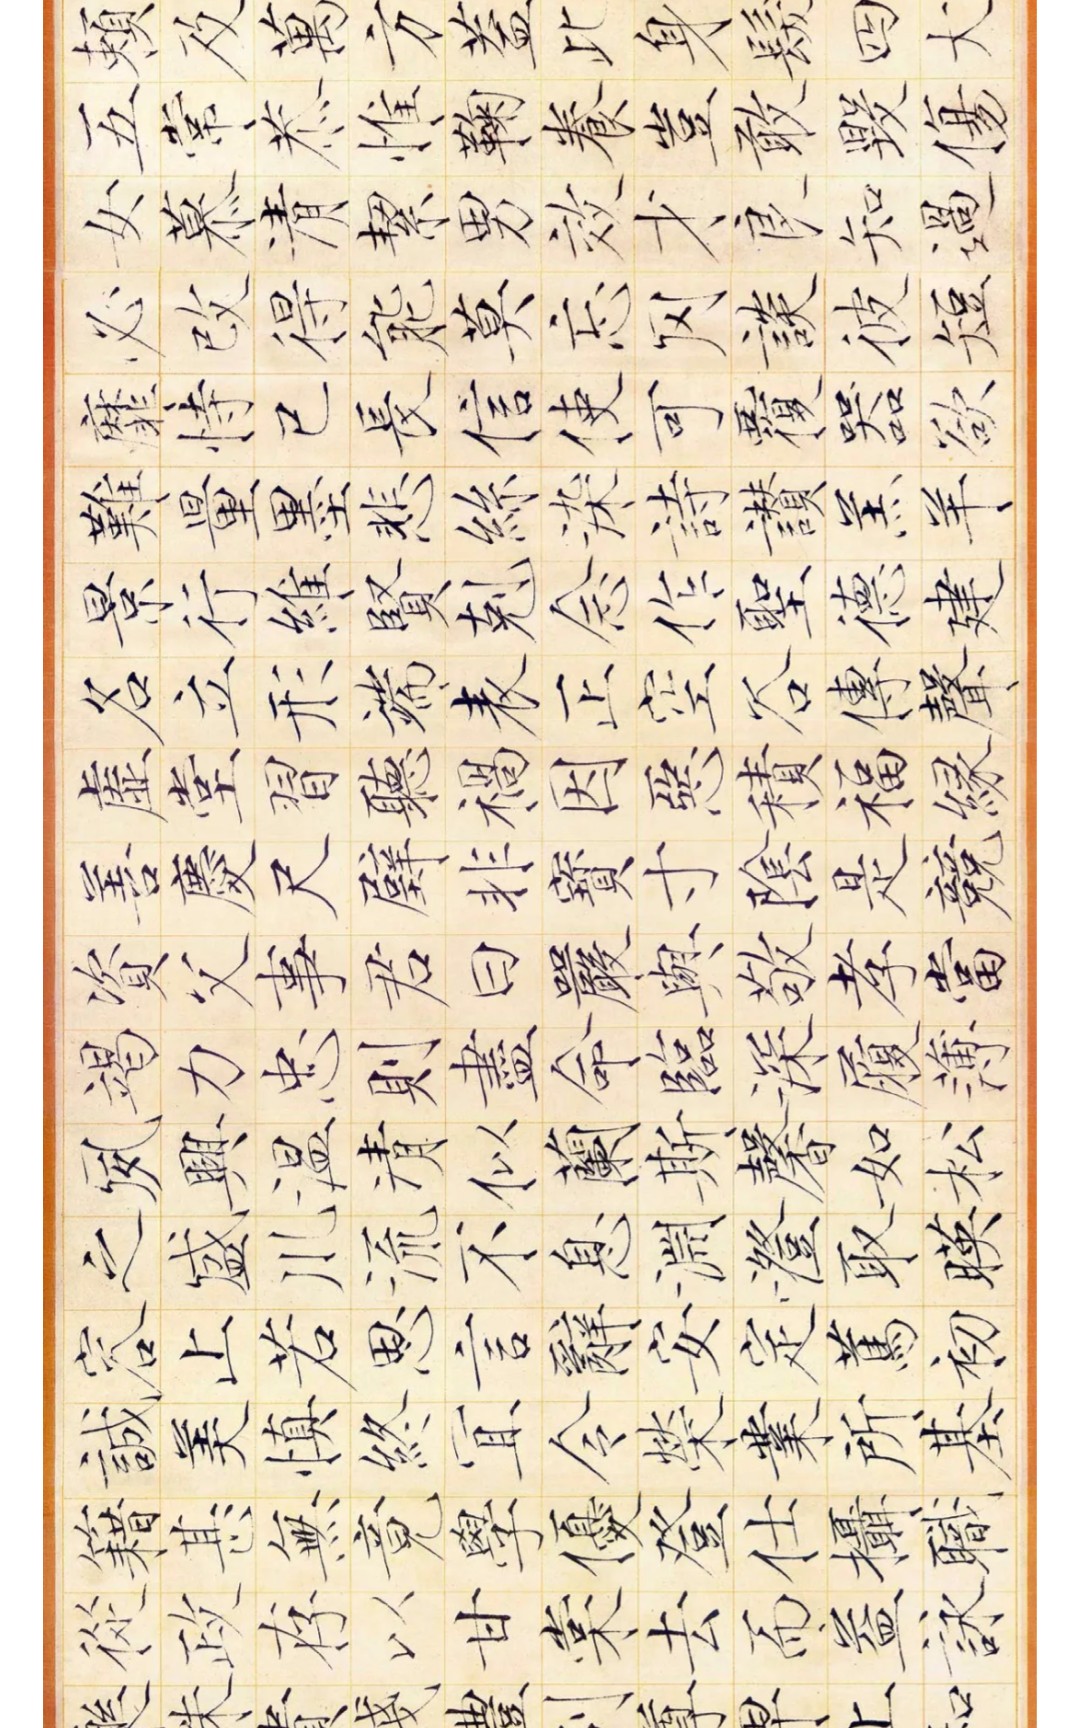 賴及萬方蓋此身髮四大
五常恭惟鞠養豈敢毀傷
女慕清絜男效才良知過
必改得能莫忘罔談彼短
靡恃己長信使可覆器欲
難量墨悲絲染詩讚羔羊
景行維賢剋念作聖德建
名立形端表正空谷傳聲
虛堂習聽禍因惡積福緣
善慶尺璧非寶寸陰是競
資父事君曰嚴與敬孝當
竭力忠則盡命臨深履薄
夙興溫清似蘭斯馨如松
之盛川流不息淵澄取暎
容止若思言辭安定篤初
誠美慎終宜令榮業所基
籍甚無竟學優登仕攝職
從政存以甘棠去而益詠